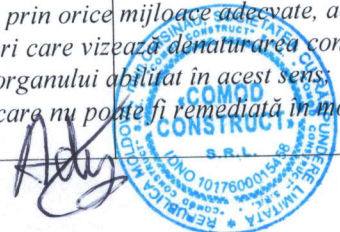 prin orice mijloace adecvate, a
ri care vizează denaturarea con
organului abilitat în acest sens;
care nu poate fi remediată în mo
"COMOD
CONSTRUCT"
S.R.L.
REPUBLICA MOLDOVA
SOCIETATEA CU RĂSPUNDERE LIMITATĂ